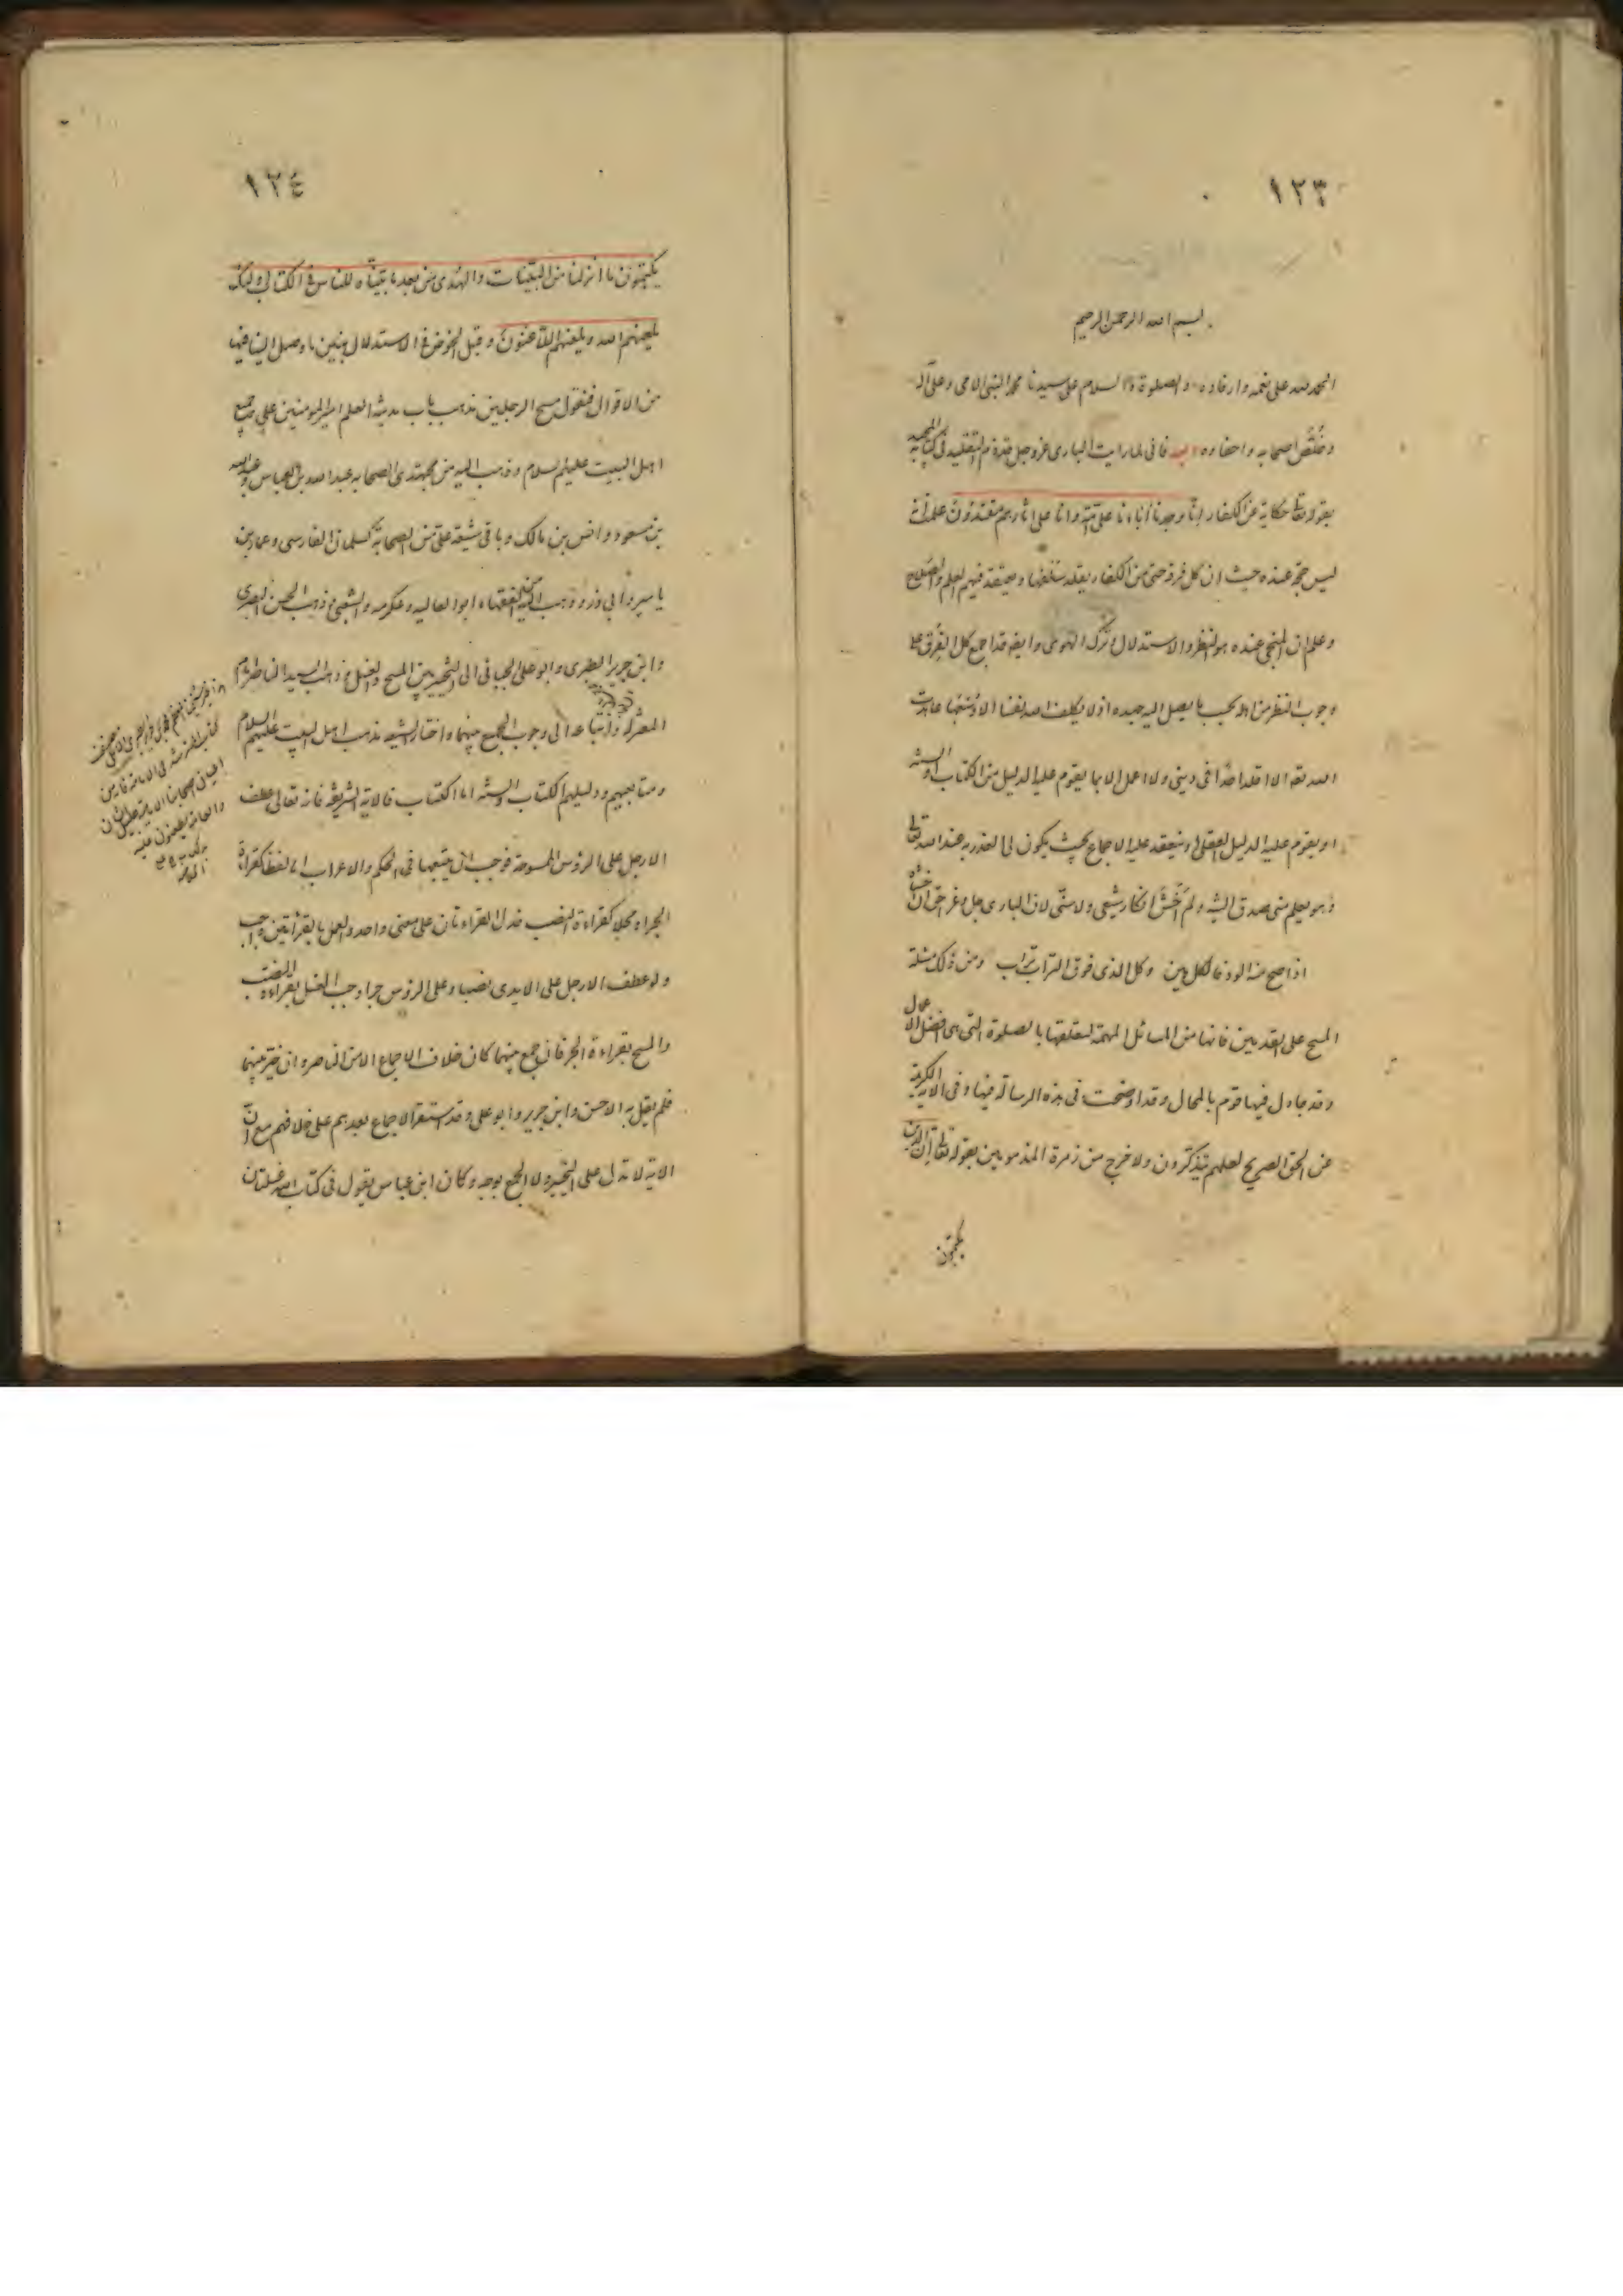 ١٢٣
بسم الله الرحمن الرحيم
الحمد لله على نعمه وارفاده والصلوة والسلام على سيدنا محمد النبى الامى وعلى آله
وخلّص اصحابه واحفاده وبعد فانى لما رايت البارى عز وجل قد ذم التقليد فى كتابه المجيد
بقوله تعا حكاية عن الكفار انا وجدنا آباءنا على امة وانا على آثارهم مقتدون علمت انه
ليس حجة عنده حيث ان كل فرقة حتى من الكفار يقلد سلفها ويعتقد فيهم العلم والصلاح
وعلم ان المنجى عنده هو النظر والاستدلال وترك الهوى وايضا قد اجمع كل الفرق على
وجوب النظر من اهله بحسب ما يصل اليه جهده اذ لا يكلف الله نفسا الا وسعها عاهدت
الله تعا الا اقلد احدا فى دينى ولا اعمل الا بما يقوم عليه الدليل من الكتاب او السنه
او يقوم عليه الدليل العقلى او ينعقد عليه الاجماع بحيث يكون لى العذر به عند الله تعالى
وهو يعلم منى صدق النية ولم اخش انكار شيعى ولا سنّى لان البارى جل وعز احق ان اخشاه
اذا صح منك الود فالكل هين وكل الذى فوق التراب تراب ومن ذلك مسئلة
المسح على القدمين فانها من المسائل المهمة لتعلقها بالصلوة التى هى افضل الاعمال
وقد جادل فيها قوم بالمحال وقد اوضحت فى هذه الرسالة فيها وفى الآية الكريمة
عن الحق الصريح لعلهم يتذكرون ولاخرج من زمرة المذمومين بقوله تعالى ان الذين
يكتمون
١٢٤
يكتمون ما انزلنا من البينات والهدى من بعد ما بيناه للناس فى الكتاب اولئك
يلعنهم الله ويلعنهم اللاعنون وقبل الخوض فى الاستدلال نبين ما وصل الينا فيها
من الاقوال فنقول مسح الرجلين مذهب باب مدينة العلم امير المؤمنين على وجميع
اهل البيت عليهم السلام وذهب اليه من مجتهدى الصحابه عبد الله بن العباس وعبد الله
بن مسعود وانس بن مالك وباقى شيعة على من الصحابة كسلمان الفارسى وعمار بن
ياسر وابى ذر وذهب اليه من الفقهاء ابو العاليه وعكرمه والشعبى وذهب الحسن البصرى
وابن جرير الطبرى وابو على الجبائى الى التخيير بين المسح والغسل وذهب السيد الناصر
واتباعه الى وجوب الجمع بينهما واختار الشيعه مذهب اهل البيت عليهم السلام
ومتابعيهم ودليلهم الكتاب والسنه اما الكتاب فالآية الشريفة فانه تعالى عطف
الارجل على الرؤس الممسوحة فوجب ان يتبعها فى الحكم والاعراب اما لفظا كقراءة
الجر او محلا كقراءة النصب فدل القراءتان على معنى واحد والعمل بالقرائتين واجب
ولو عطف الارجل على الايدى نصبا وعلى الرؤس جرا وجب الغسل بقراءة النصب
والمسح بقراءة الجر فان جمع بينهما كان خلاف الاجماع الا من الناصر وان خير بينهما
فلم يقل به الا حسن وابن جرير وابو على وقد استقر الاجماع بعدهم على خلافهم مع ان
الآية لا تدل على التخيير ولا الجمع بوجه وكان ابن عباس يقول فى كتاب الله غسلتان